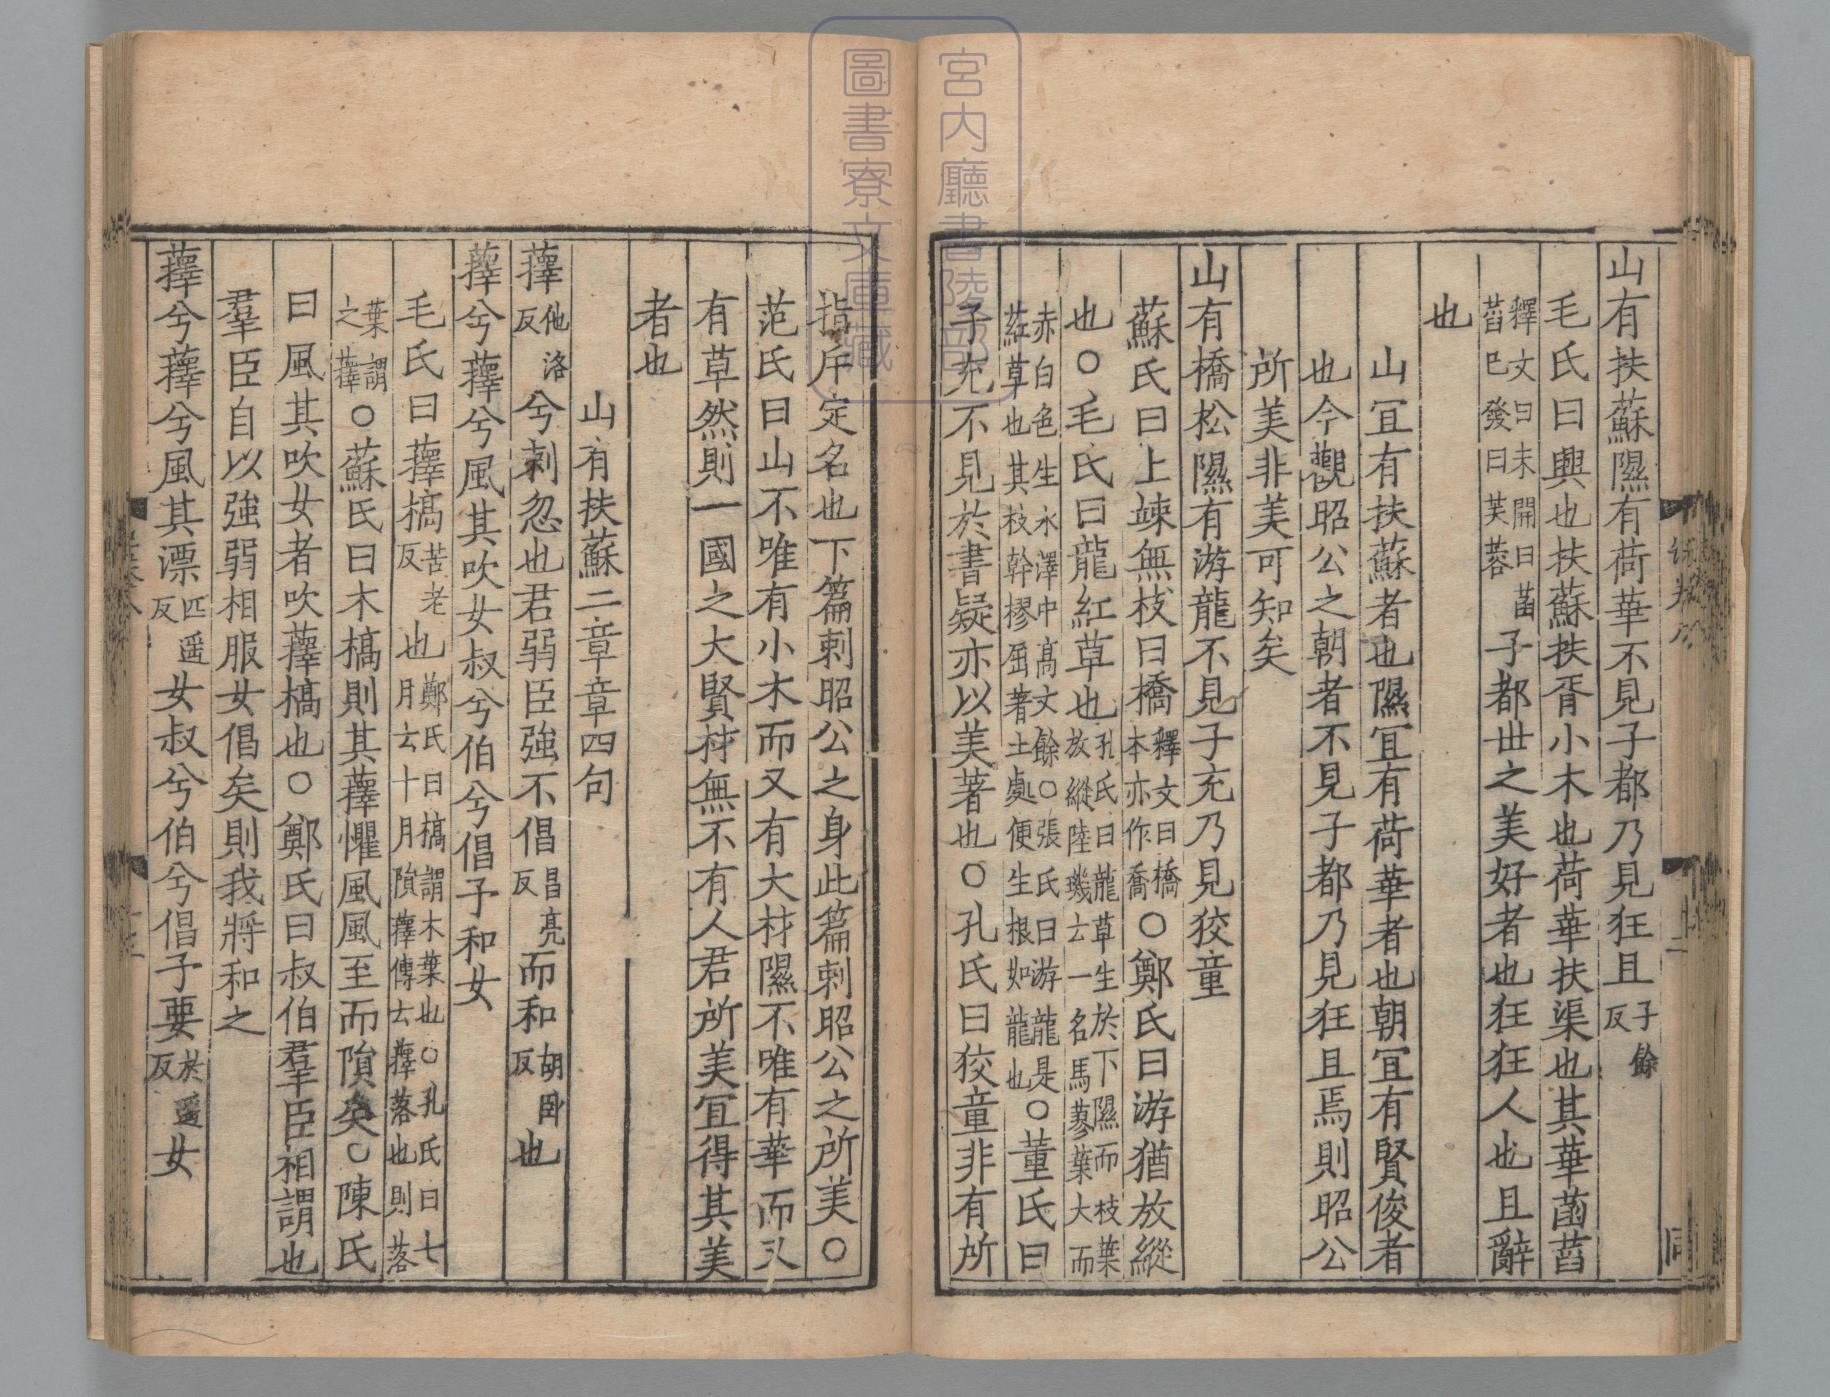 山有扶蘇隰有荷華不見子都乃見狂且子餘反
毛氏曰興也扶蘇扶胥小木也荷華扶渠也其華菡萏
釋文曰未開曰菡萏已發曰芙蓉子都世之美好者也狂狂人也且辭
也
山宜有扶蘇者也隰宜有荷華者也朝宜有賢俊者
也今觀昭公之朝者不見子都乃見狂且焉則昭公
所美非美可知矣
山有橋松隰有游龍不見子充乃見狡童
蘇氏曰上竦無枝曰橋釋文曰橋本亦作喬○鄭氏曰游猶放縱
也○毛氏曰龍紅草也孔氏曰龍草生於下隰而枝葉放縱陸璣云一名馬蓼葉大而
赤白色生水澤中高丈餘○張氏曰游龍是紅草也其枝幹樛屈著土處便生根如龍也○董氏曰
子充不見於書疑亦以美著也○孔氏曰狡童非有所
指斥定名也下篇刺昭公之身此篇刺昭公之所美○
范氏曰山不唯有小木而又有大材隰不唯有華而又
有草然則一國之大賢材無不有人君所美宜得其美
者也
山有扶蘇二章章四句
蘀他洛反兮刺忽也君弱臣強不倡昌亮反而和胡卧反也
蘀兮蘀兮風其吹女叔兮伯兮倡予和女
毛氏曰蘀槁苦老反也鄭氏曰槁謂木葉也○孔氏曰七月云十月隕蘀傳云蘀落也則落
葉謂之蘀○蘇氏曰木槁則其蘀懼風風至而隕矣○陳氏
曰風其吹女者吹蘀槁也○鄭氏曰叔伯羣臣相謂也
羣臣自以強弱相服女倡矣則我將和之
蘀兮蘀兮風其漂匹遥反女叔兮伯兮倡予要於遥反女
宮内廳書陵部
圖書寮文庫藏